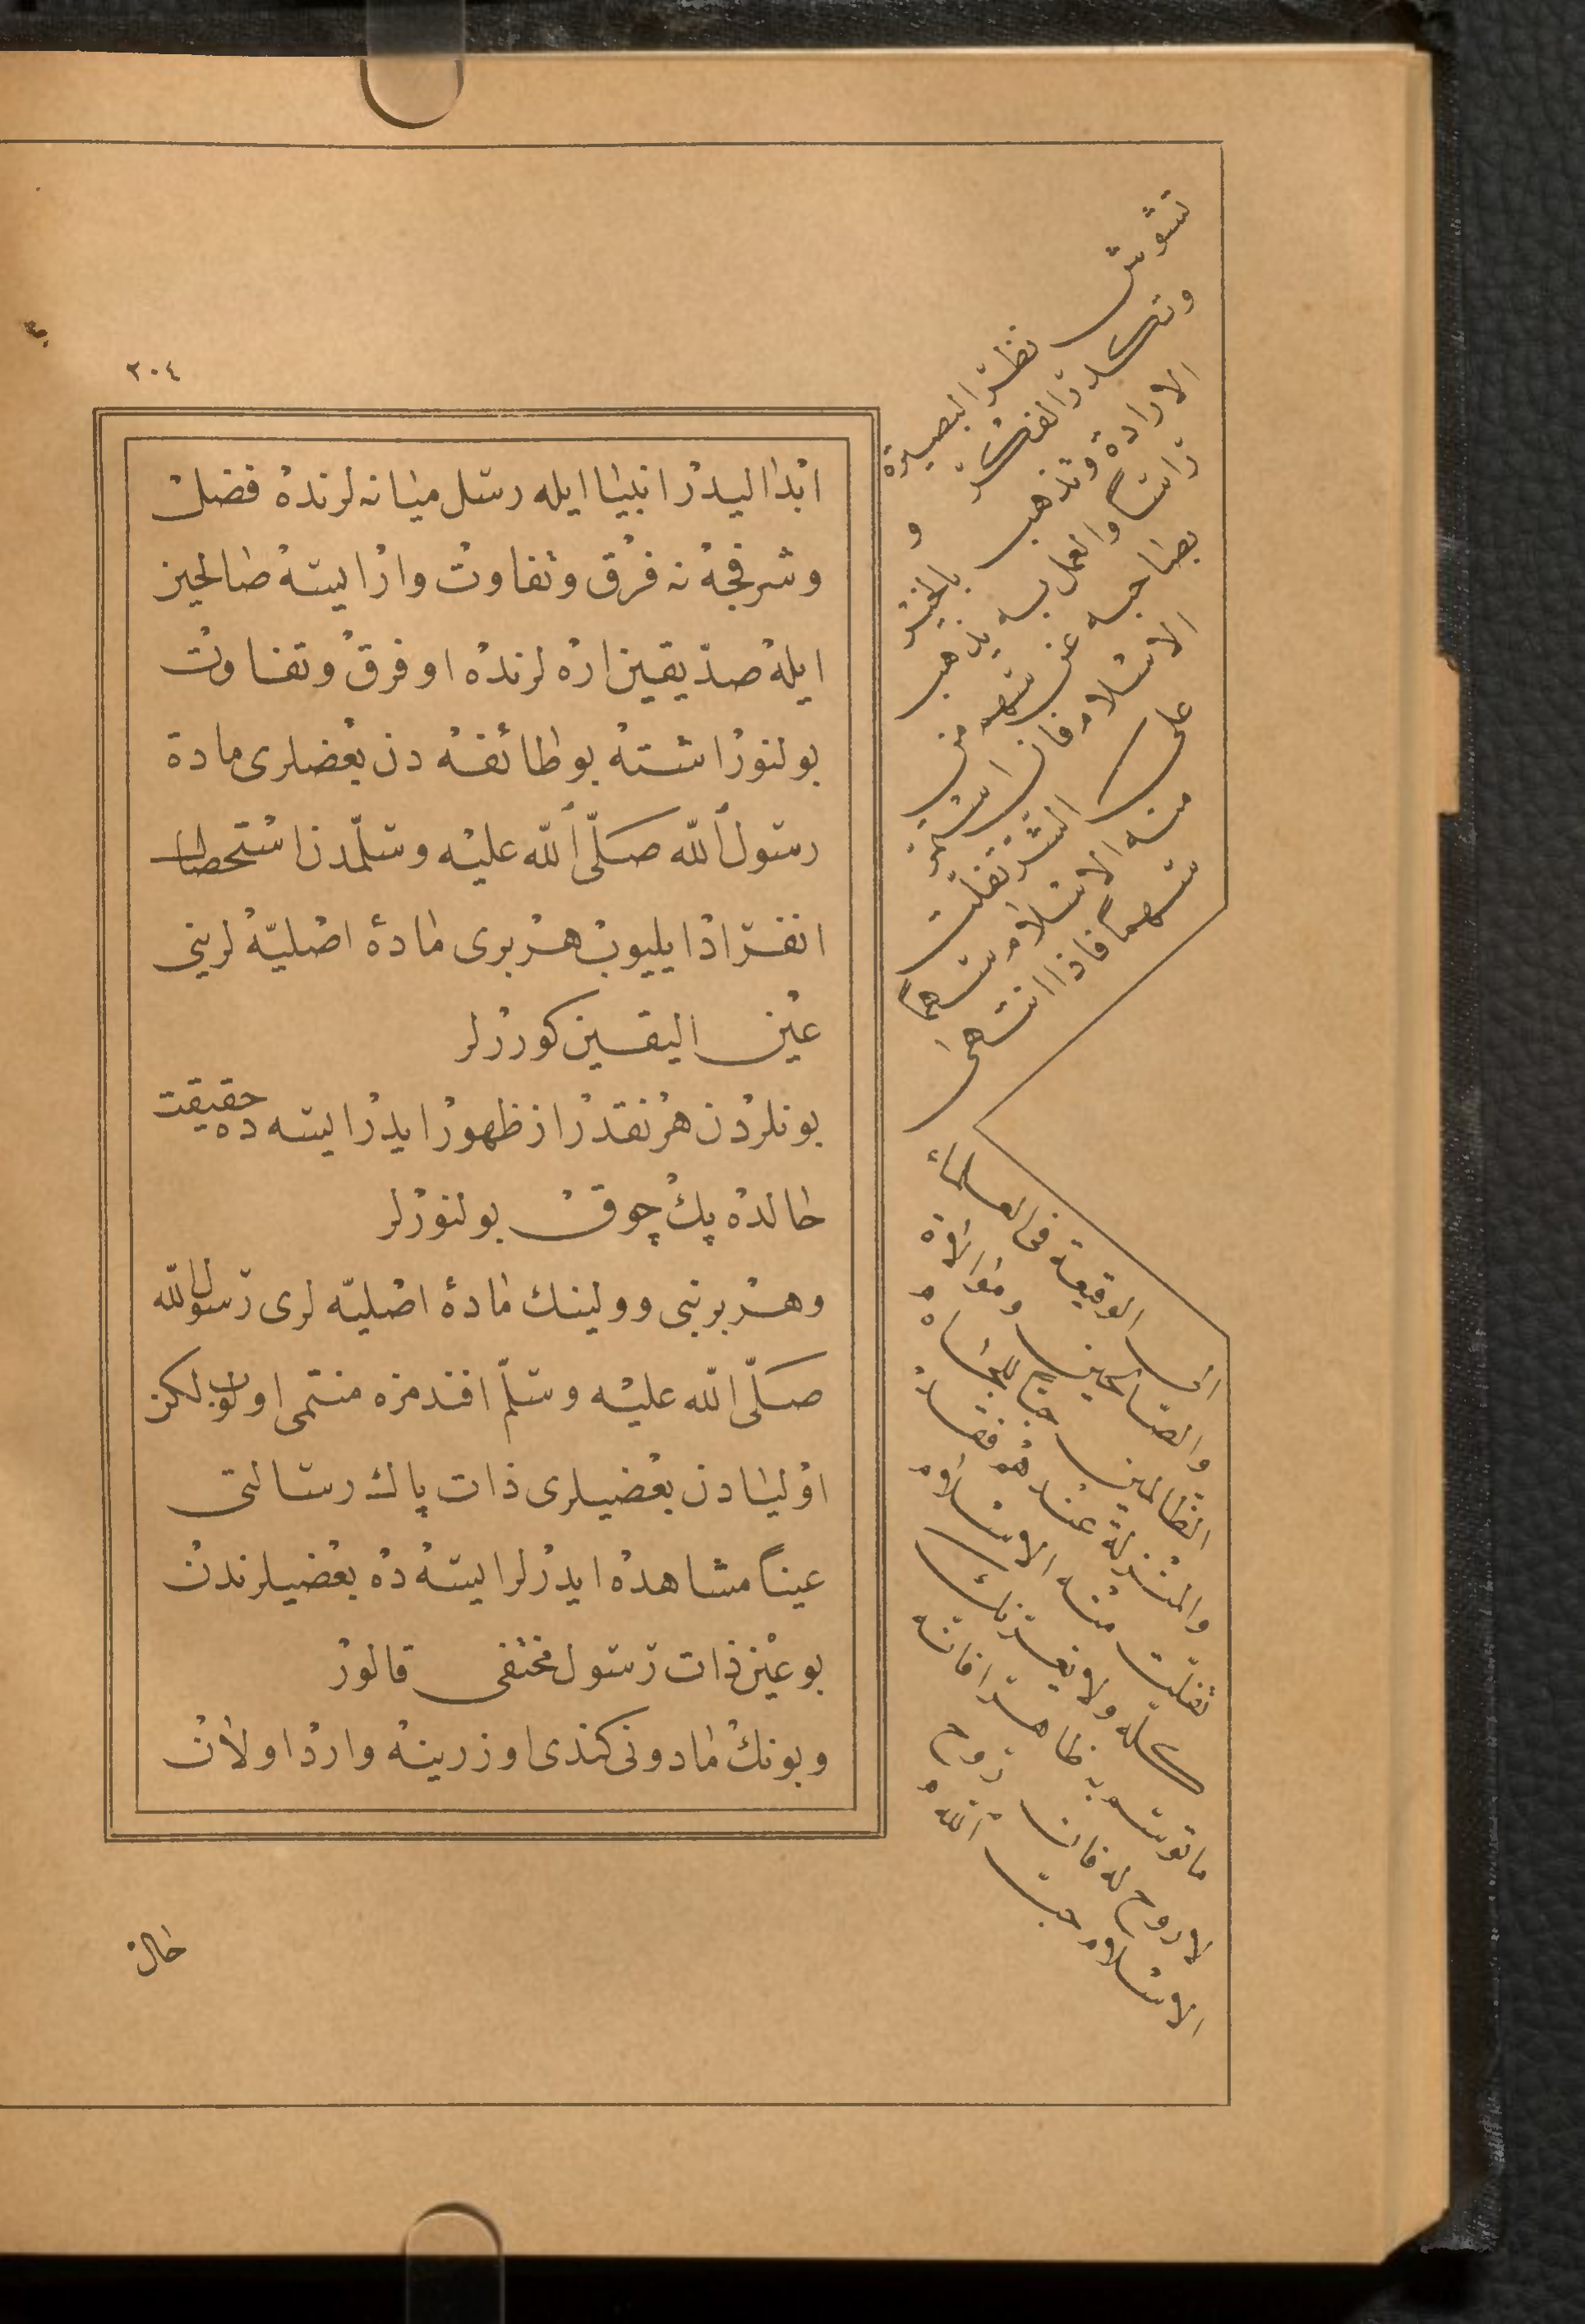 ٣٠٤
ابدا ليدر انبيا ايله رسل ميانه لرنده فضل
وشرفجه نه فرق وتفاوت وار ايسه صالحين
ايله صدّيقين اره لرنده او فرق وتفاوت
بولنور اشته بو طائفه دن بعضلرى مادة
رسول الله صلّى الله عليه وسلّمدن استحصال
انفراد ايليوب هر برى مادۀ اصليّه لرينى
عين اليقين كوررلر
بونلردن هر نقدر از ظهور ايدر ايسه ده حقيقت
حالده پك چوق بولنورلر
وهر بر نبى وولينك مادۀ اصليّه لرى رسول الله
صلّى الله عليه وسلّم افندمزه منتمى اولوب لكن
اوليادن بعضيلرى ذات پاك رسالتى
عيناً مشاهده ايدرلر ايسه ده بعضيلرندن
بو عين ذات رسول مختفى قالور
وبونك مادونى كندى اوزرينه وارد اولان
حالن
تشوش نظر البصيرة
وتكدر الفكر و
الارادة وتذهب بالخير
رأساً والعمل به يذهب
بصاحبه عن سهم من
الاسلام فان استمر
على الشر تفلت
منه الاسلام سهماً
سهماً فاذا انتهى
الى الوقيعة فى العلماء
والصالحين وموالاة
الظالمين حباً للجاه
والمنزلة عندهم فقد
تفلت منه الاسلام
كله ولا يغرنك
ما توسم به ظاهراً فانه
لا روح له فان روح
الاسلام حب الله